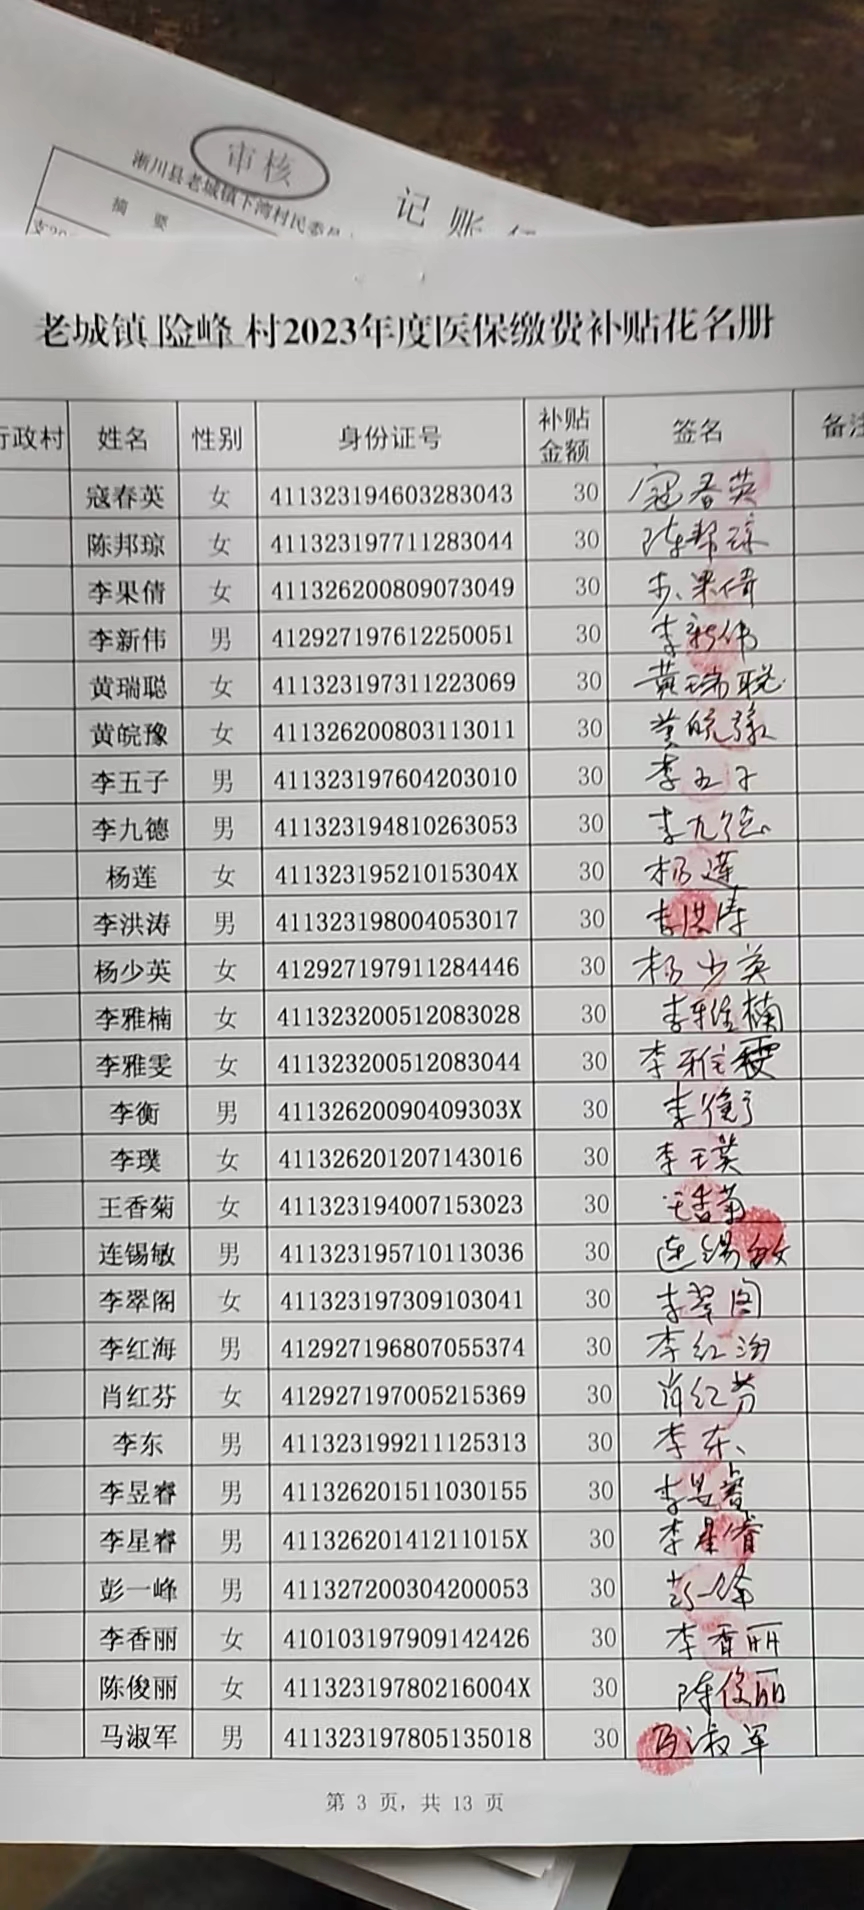 审核
淅川县老城镇下湾村民委
记账
摘 要
老城镇 险峰 村2023年度医保缴费补贴花名册
行政村 姓名 性别 身份证号 补贴金额 签名 备注
寇春英 女 411323194603283043 30 寇春英
陈邦琼 女 411323197711283044 30 陈邦琼
李果倩 女 411326200809073049 30 李果倩
李新伟 男 412927197612250051 30 李新伟
黄瑞聪 女 411323197311223069 30 黄瑞聪
黄皖豫 女 411326200803113011 30 黄皖豫
李五子 男 411323197604203010 30 李五子
李九德 男 411323194810263053 30 李九德
杨莲 女 41132319521015304X 30 杨莲
李洪涛 男 411323198004053017 30 李洪涛
杨少英 女 412927197911284446 30 杨少英
李雅楠 女 411323200512083028 30 李雅楠
李雅雯 女 411323200512083044 30 李雅雯
李衡 男 41132620090409303X 30 李衡
李璞 女 411326201207143016 30 李璞
王香菊 女 411323194007153023 30 王香菊
连锡敏 男 411323195710113036 30 连锡敏
李翠阁 女 411323197309103041 30 李翠阁
李红海 男 412927196807055374 30 李红海
肖红芬 女 412927197005215369 30 肖红芬
李东 男 411323199211125313 30 李东
李昱睿 男 411326201511030155 30 李昱睿
李星睿 男 41132620141211015X 30 李星睿
彭一峰 男 411327200304200053 30 彭一峰
李香丽 女 410103197909142426 30 李香丽
陈俊丽 女 41132319780216004X 30 陈俊丽
马淑军 男 411323197805135018 30 马淑军
第 3 页，共 13 页